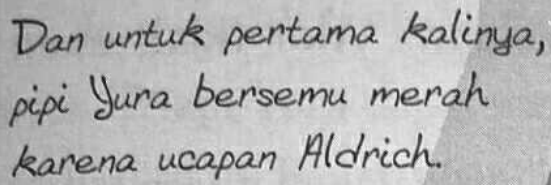 Dan untuk pertama kalinya,
pipi Yura bersemu merah
karena ucapan Aldrich.